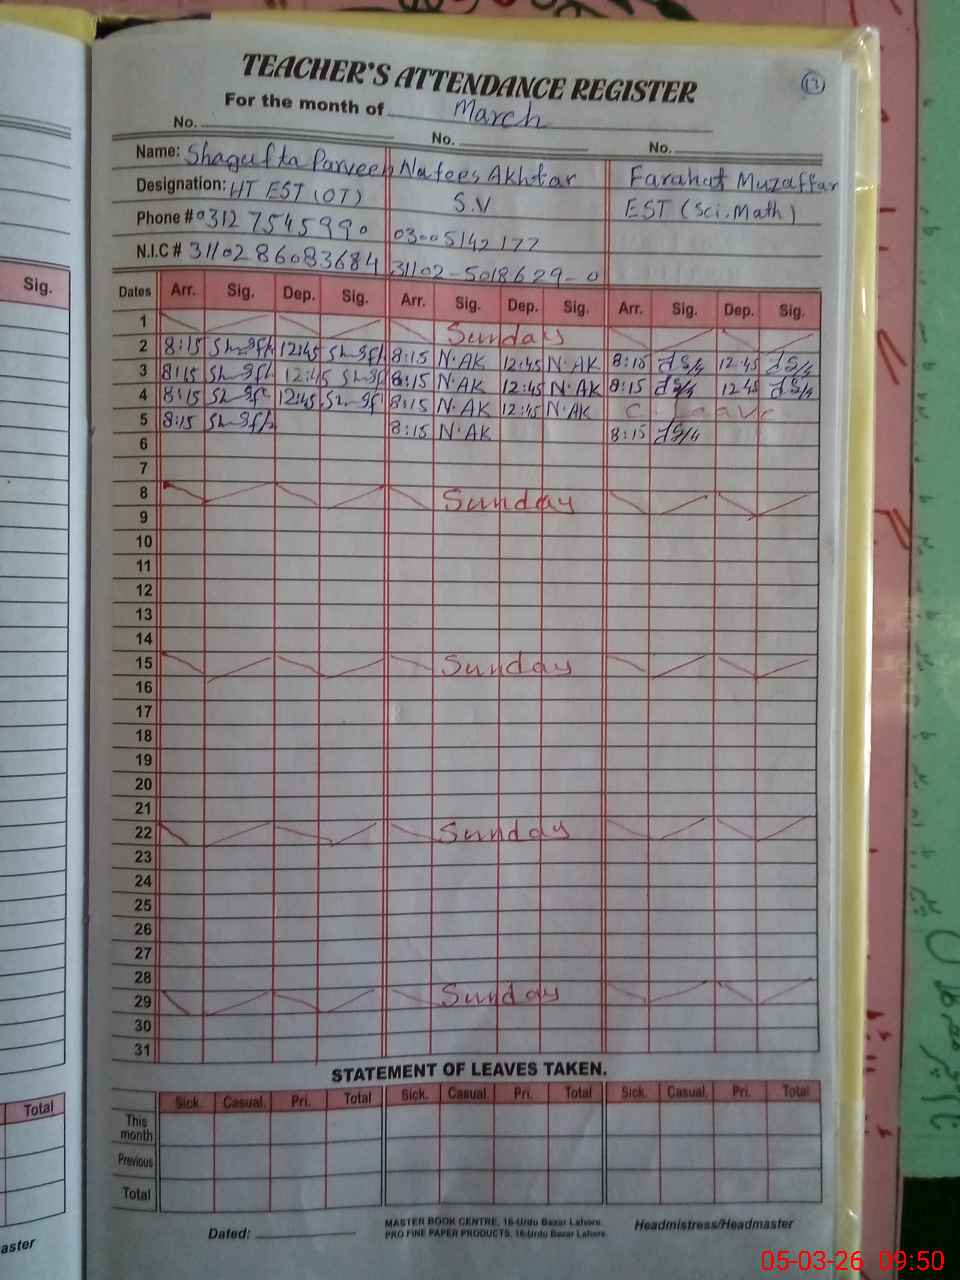 TEACHER'S ATTENDANCE REGISTER
13
For the month of March
No. No. No.
Name: Shagufta Parveen Nafees Akhtar Farahat Muzaffar
Designation: HT EST (OT) S.V EST (Sci.Math)
Phone # 0312 7545990 03005142177
N.I.C # 31102 86083684 31102-5018629-0
Sig. Dates Arr. Sig. Dep. Sig. Arr. Sig. Dep. Sig. Arr. Sig. Dep. Sig.
1 Sunday
2 8:15 12:45 8:15 N.AK 12:45 N.AK 8:15 12:45
3 8:15 12:45 8:15 N.AK 12:45 N.AK 8:15 12:45
4 8:15 12:45 8:15 N.AK 12:45 N.AK C. Leave
5 8:15 8:15 N.AK 8:15
6
7
8 Sunday
9
10
11
12
13
14
15 Sunday
16
17
18
19
20
21
22 Sunday
23
24
25
26
27
28
29 Sunday
30
31
STATEMENT OF LEAVES TAKEN.
Total Sick. Casual. Pri. Total Sick. Casual. Pri. Total Sick. Casual. Pri. Total
This
month
Previous
Total
Dated: MASTER BOOK CENTRE, 16-Urdu Bazar Lahore. Headmistress/Headmaster
PRO FINE PAPER PRODUCTS, 16-Urdu Bazar Lahore.
aster
05-03-26 09:50